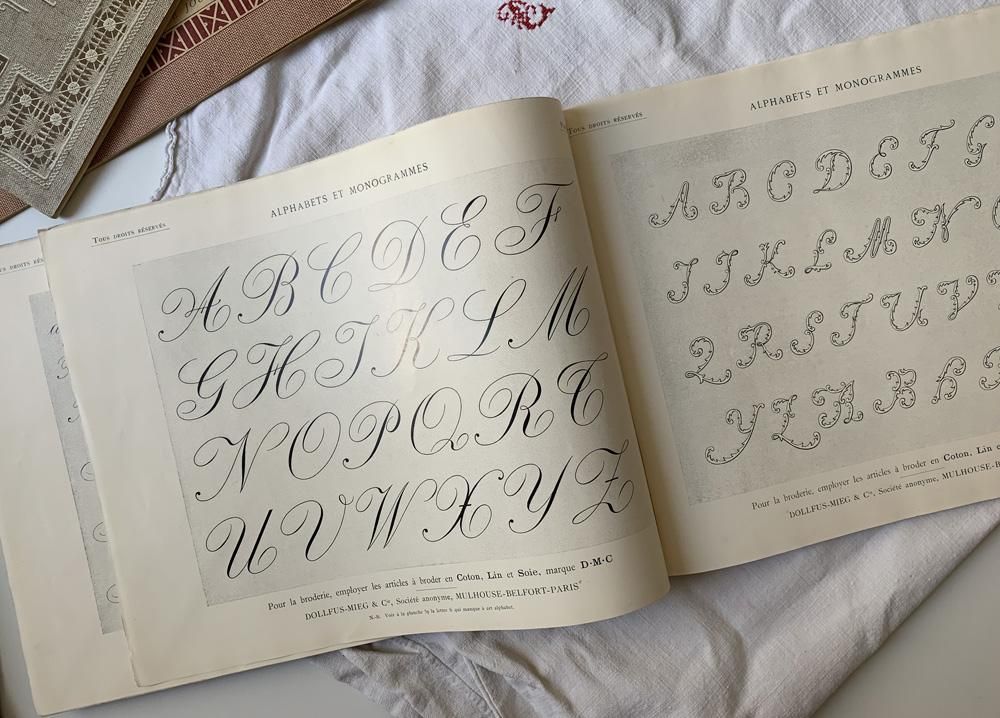 TOUS DROITS RÉSERVÉS
ALPHABETS ET MONOGRAMMES
A B C D E F
G H I K L M
N O P Q R T
U V W X Y Z
Pour la broderie, employer les articles à broder en Coton, Lin et Soie, marque D·M·C
DOLLFUS-MIEG & Cie, Société anonyme, MULHOUSE-BELFORT-PARIS
N.-B. Voir à la planche la lettre S qui manque à cet alphabet.
TOUS DROITS RÉSERVÉS
ALPHABETS ET MONOGRAMMES
A B C D E F G
I J K L M N
Q R S T U V
Y Z
Pour la broderie, employer les articles à broder en Coton, Lin
DOLLFUS-MIEG & Cie, Société anonyme, MULHOUSE-B
DROITS RÉSERVÉS